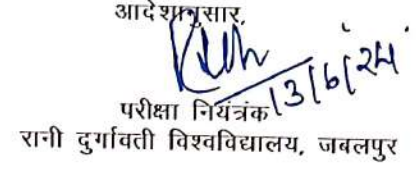 आदेशानुसार,
13/6/24
परीक्षा नियंत्रक
रानी दुर्गावती विश्वविद्यालय, जबलपुर